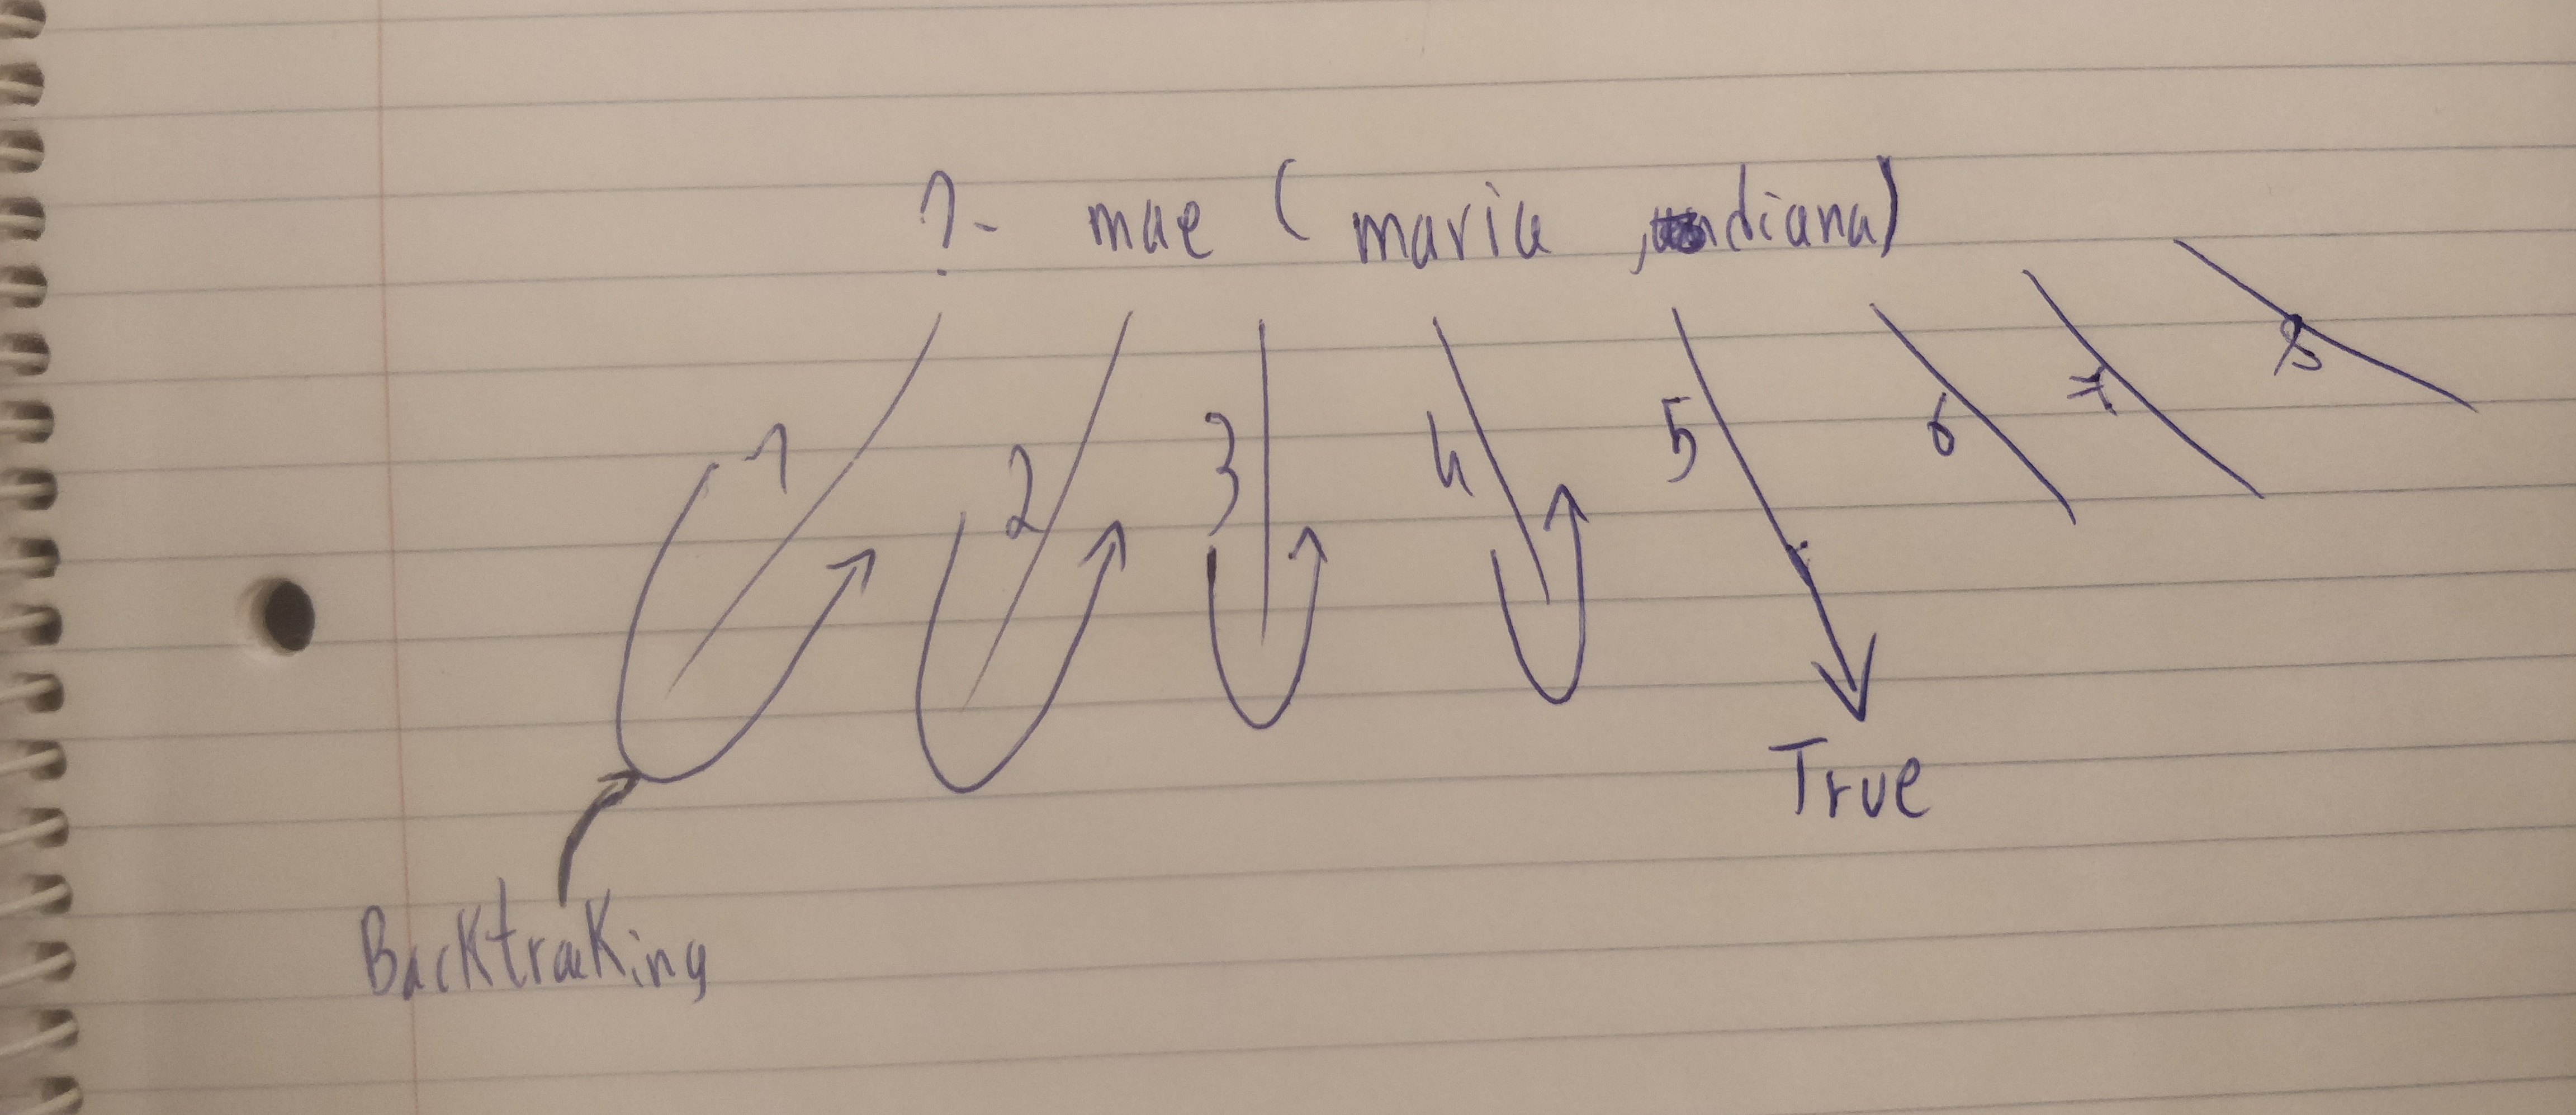 ?- mae ( maria , diana)
1 2 3 4 5 6 7 8
True
Backtracking